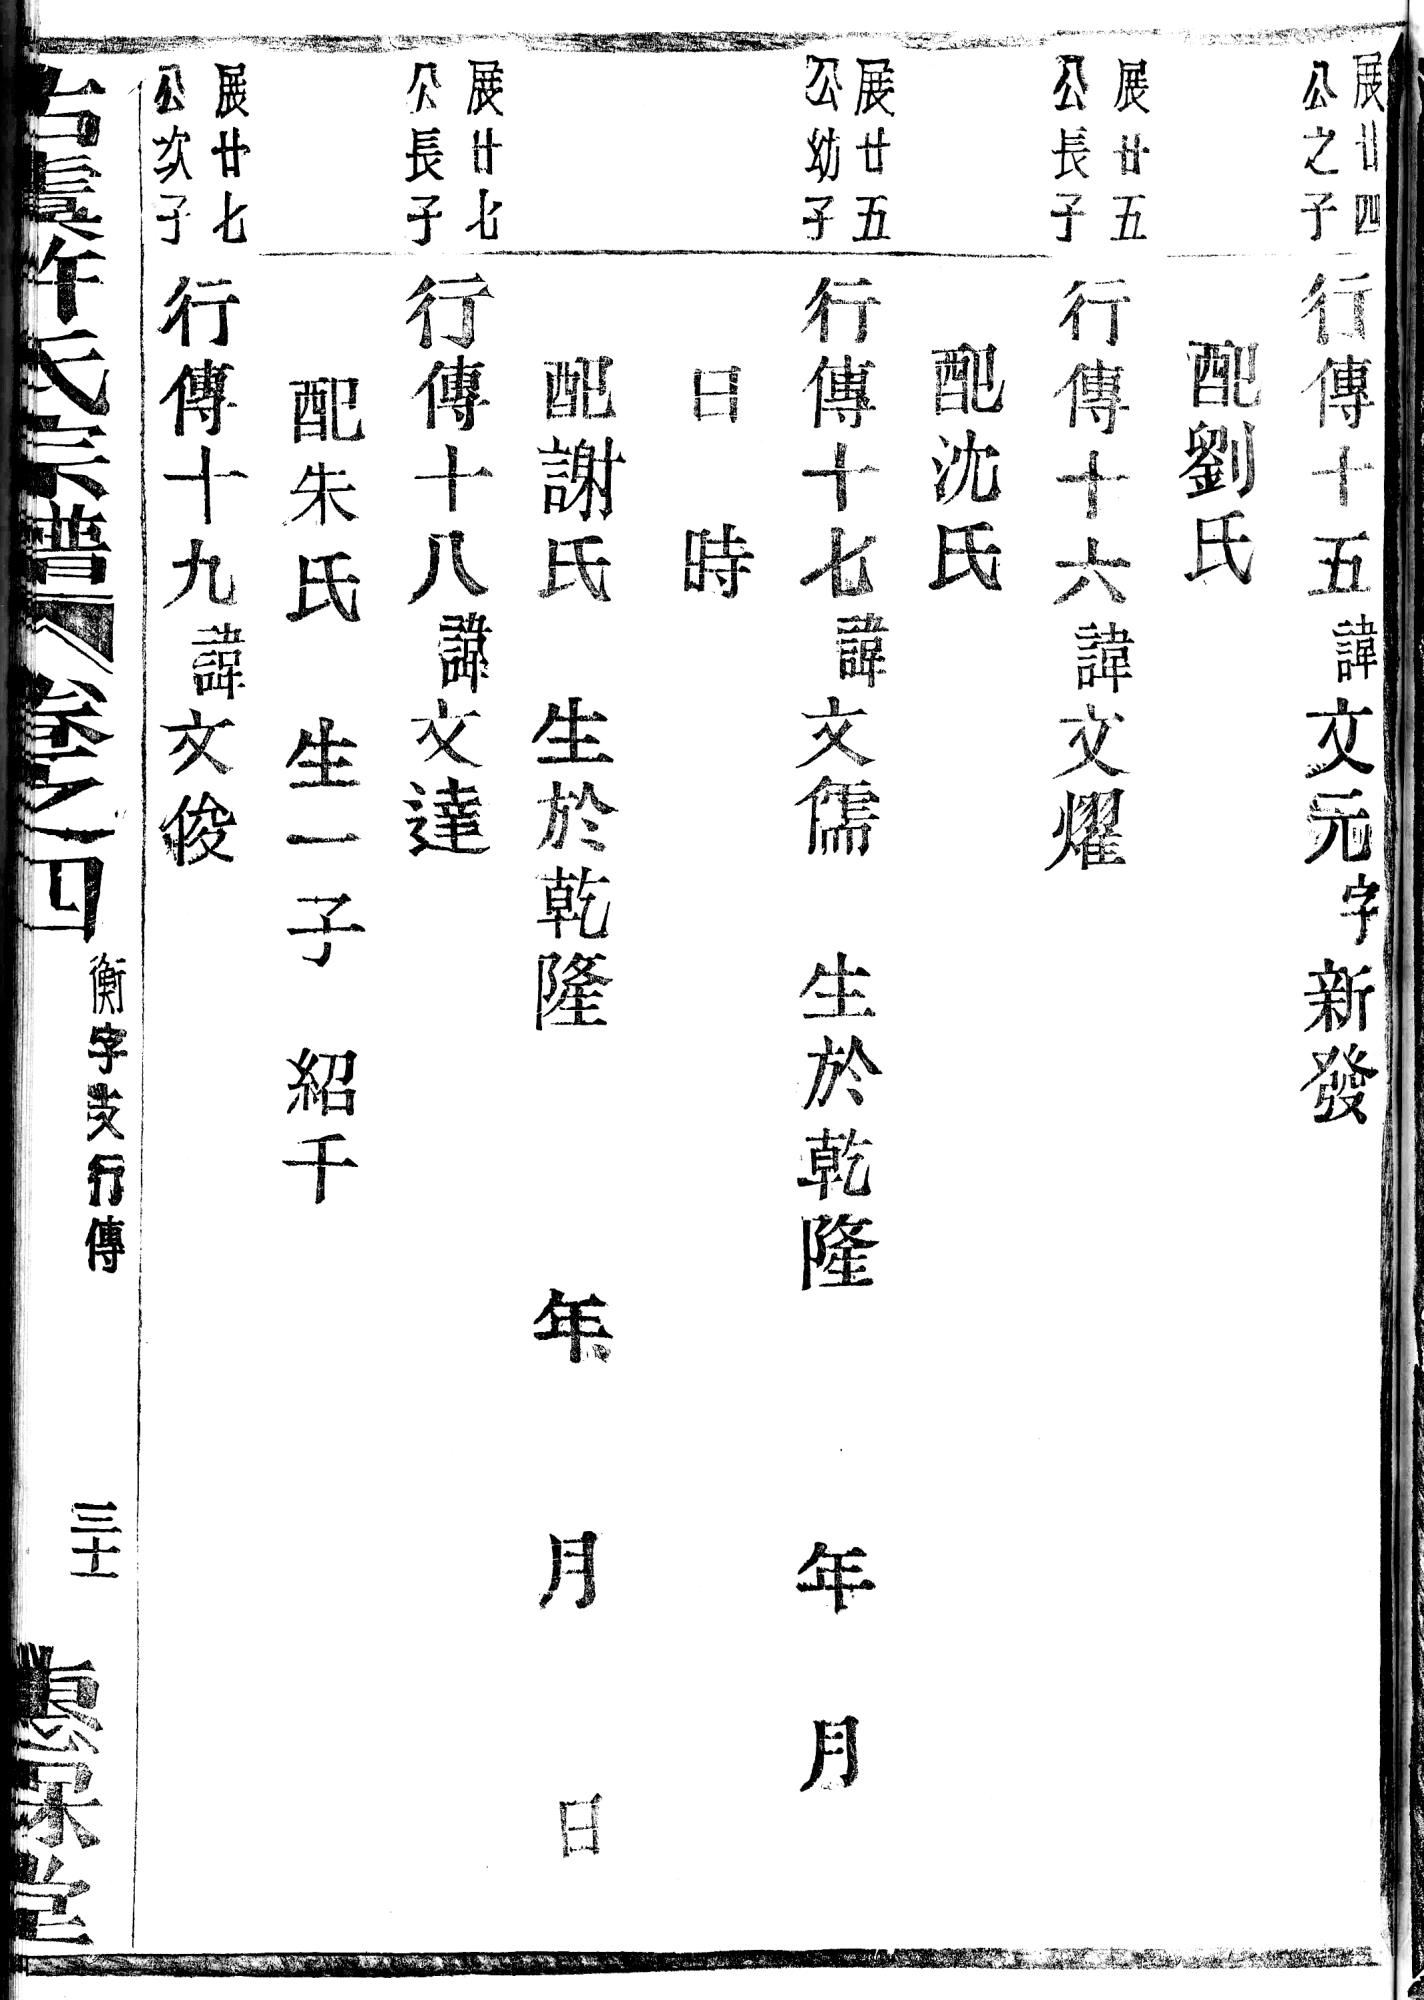 展廿四
公之子
行傳十五諱文元字新發
配劉氏
展廿五
公長子
行傳十六諱文燿
配沈氏
展廿五
公幼子
行傳十七諱文儒 生於乾隆 年 月
日 時
配謝氏 生於乾隆 年 月 日
展廿七
公長子
行傳十八諱文達
配朱氏 生一子 紹千
展廿七
公次子
行傳十九諱文俊
古虞許氏宗譜 卷之四 衡字支行傳 三十